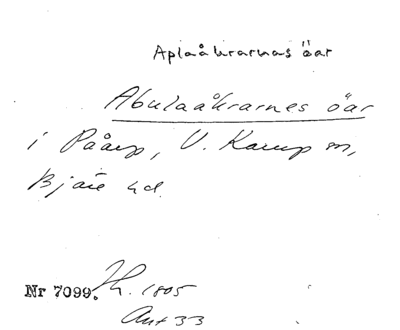 Aplaåkrarnas öar
Abulaåkrarnes öar
i Påarp, V. Karup sn,
Bjäre hd.
Nr 7099. Jh. 1805
Ant 33